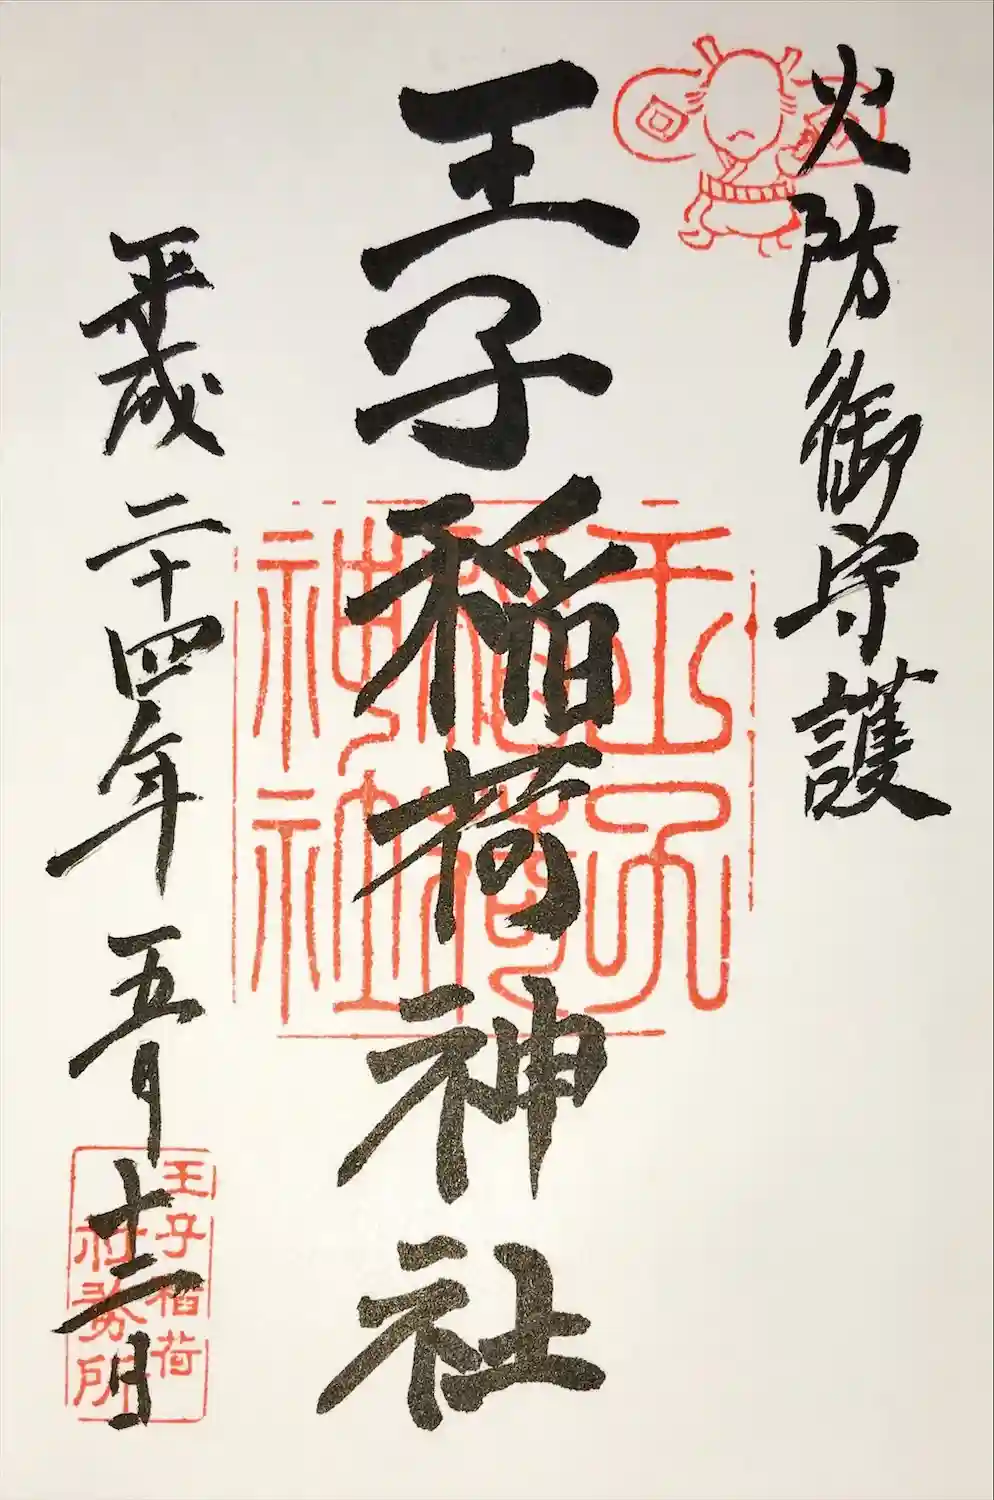 火防御守護
王子稲荷神社
王子
稲荷
神社
平成二十四年五月十二日
王子稲荷
社務所